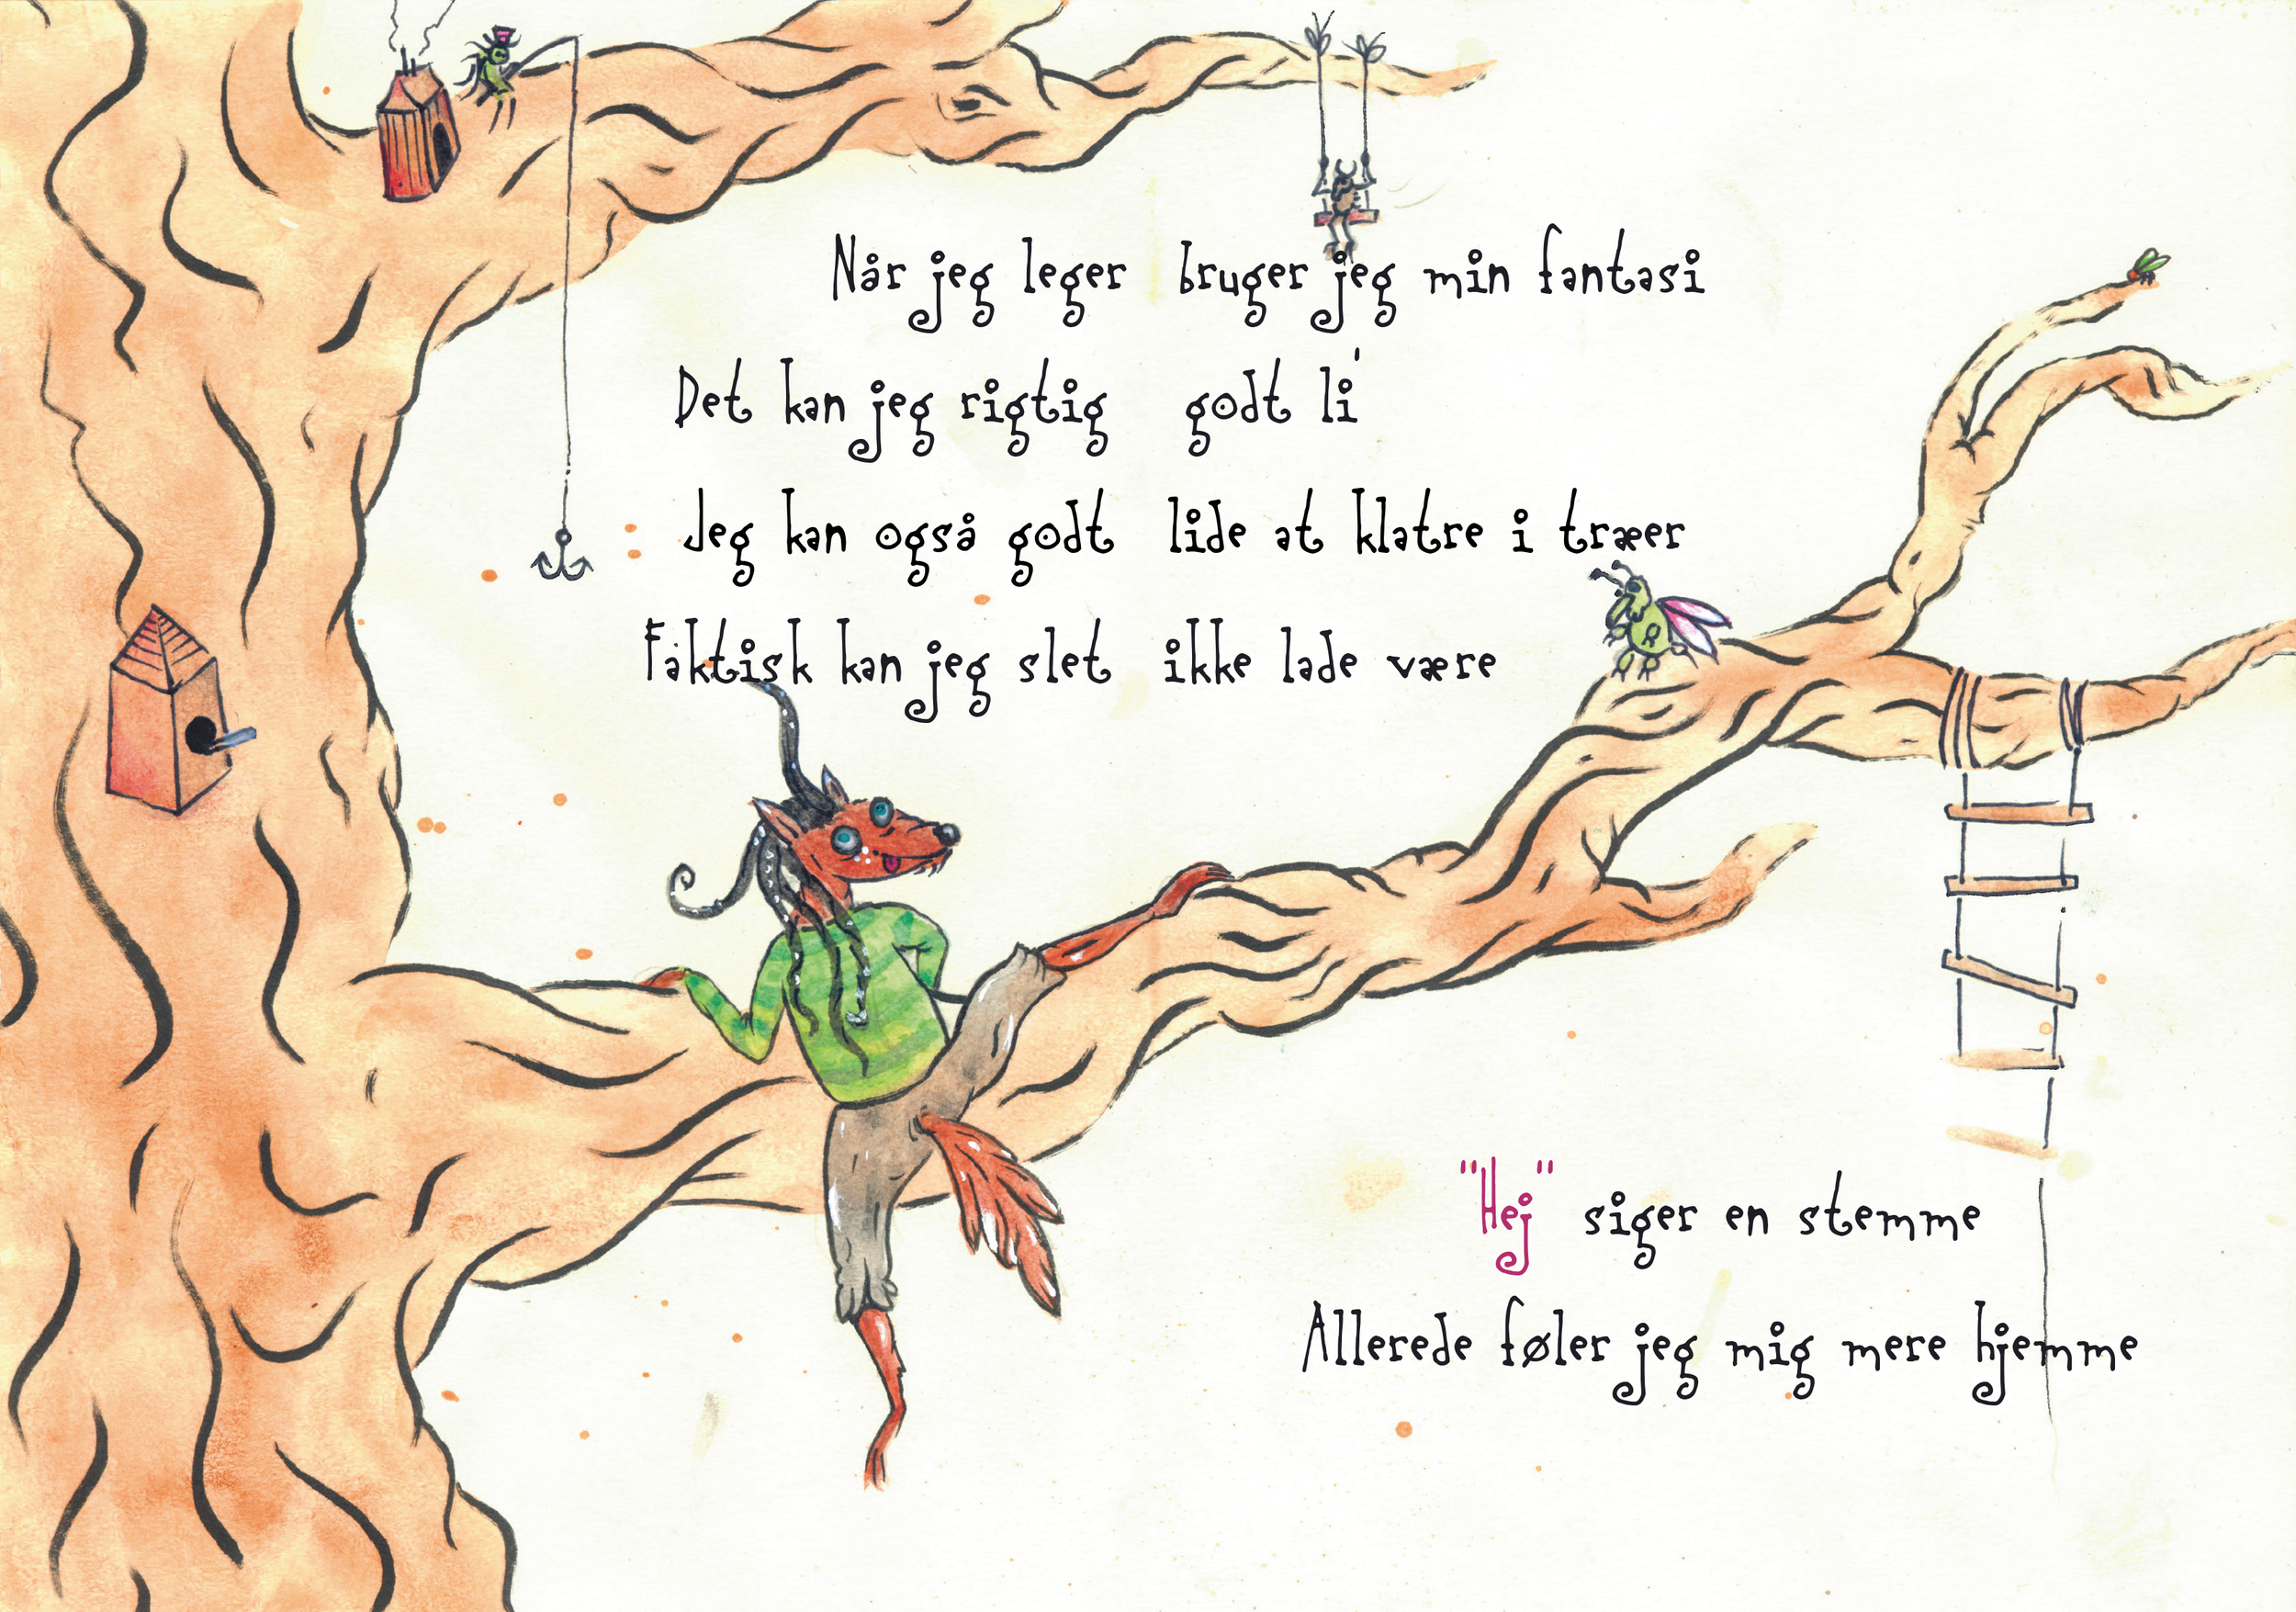 Når jeg leger bruger jeg min fantasi
Det kan jeg rigtig godt li'
Jeg kan også godt lide at klatre i træer
Faktisk kan jeg slet ikke lade være
"Hej" siger en stemme
Allerede føler jeg mig mere hjemme